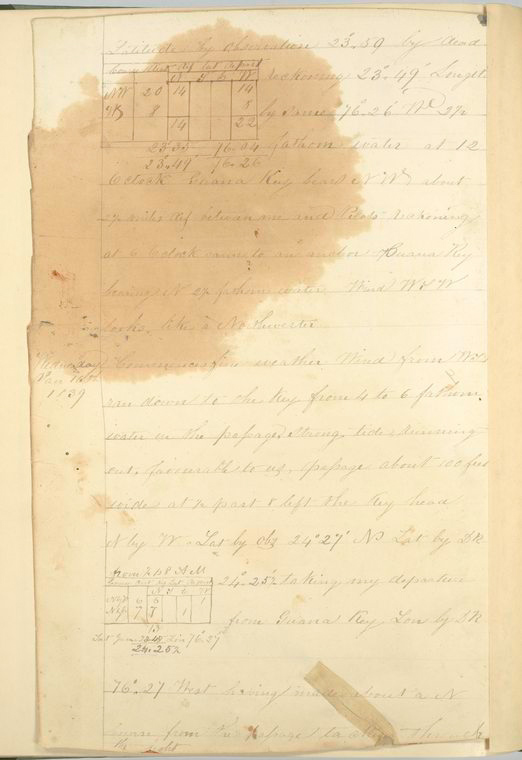 Latitude by observation 23°.59 by dead
Course Dist Dif Lat Depart
N S E W
NW 20 14 14
W 8 8
14 22
reckoning 23°.49' Longt
by same 76°.26 W
23.35 76.04
23.49' 76.26
fathom water at 12
O clock Guana Key bears N W about
miles dif between me and Pilots reckoning
at 6 O clock came to an anchor Guana Key
bearing N fathom water Wind W
looks like a Norwester
Wednesday
Jan 16th
1839
Commences fine weather Wind from
ran down to the Key from 4 to 6 fathom
water in the passage Strong tide running
out, favourable to us, passage about 100 feet
wide at ½ past 8 left the Key head
N by W. Lat by obs 24° 27' N Lat by DR
from ½ p 8 A M
Course Dist Dif Lat Depart
N S E W
6 6 1
7 7 1
13
24°.25½ taking my departure
from Guana Key Lon by DR
Lat Lon 76°.27
24.25½
76°.27 West having made about a N
course from the passage
the night